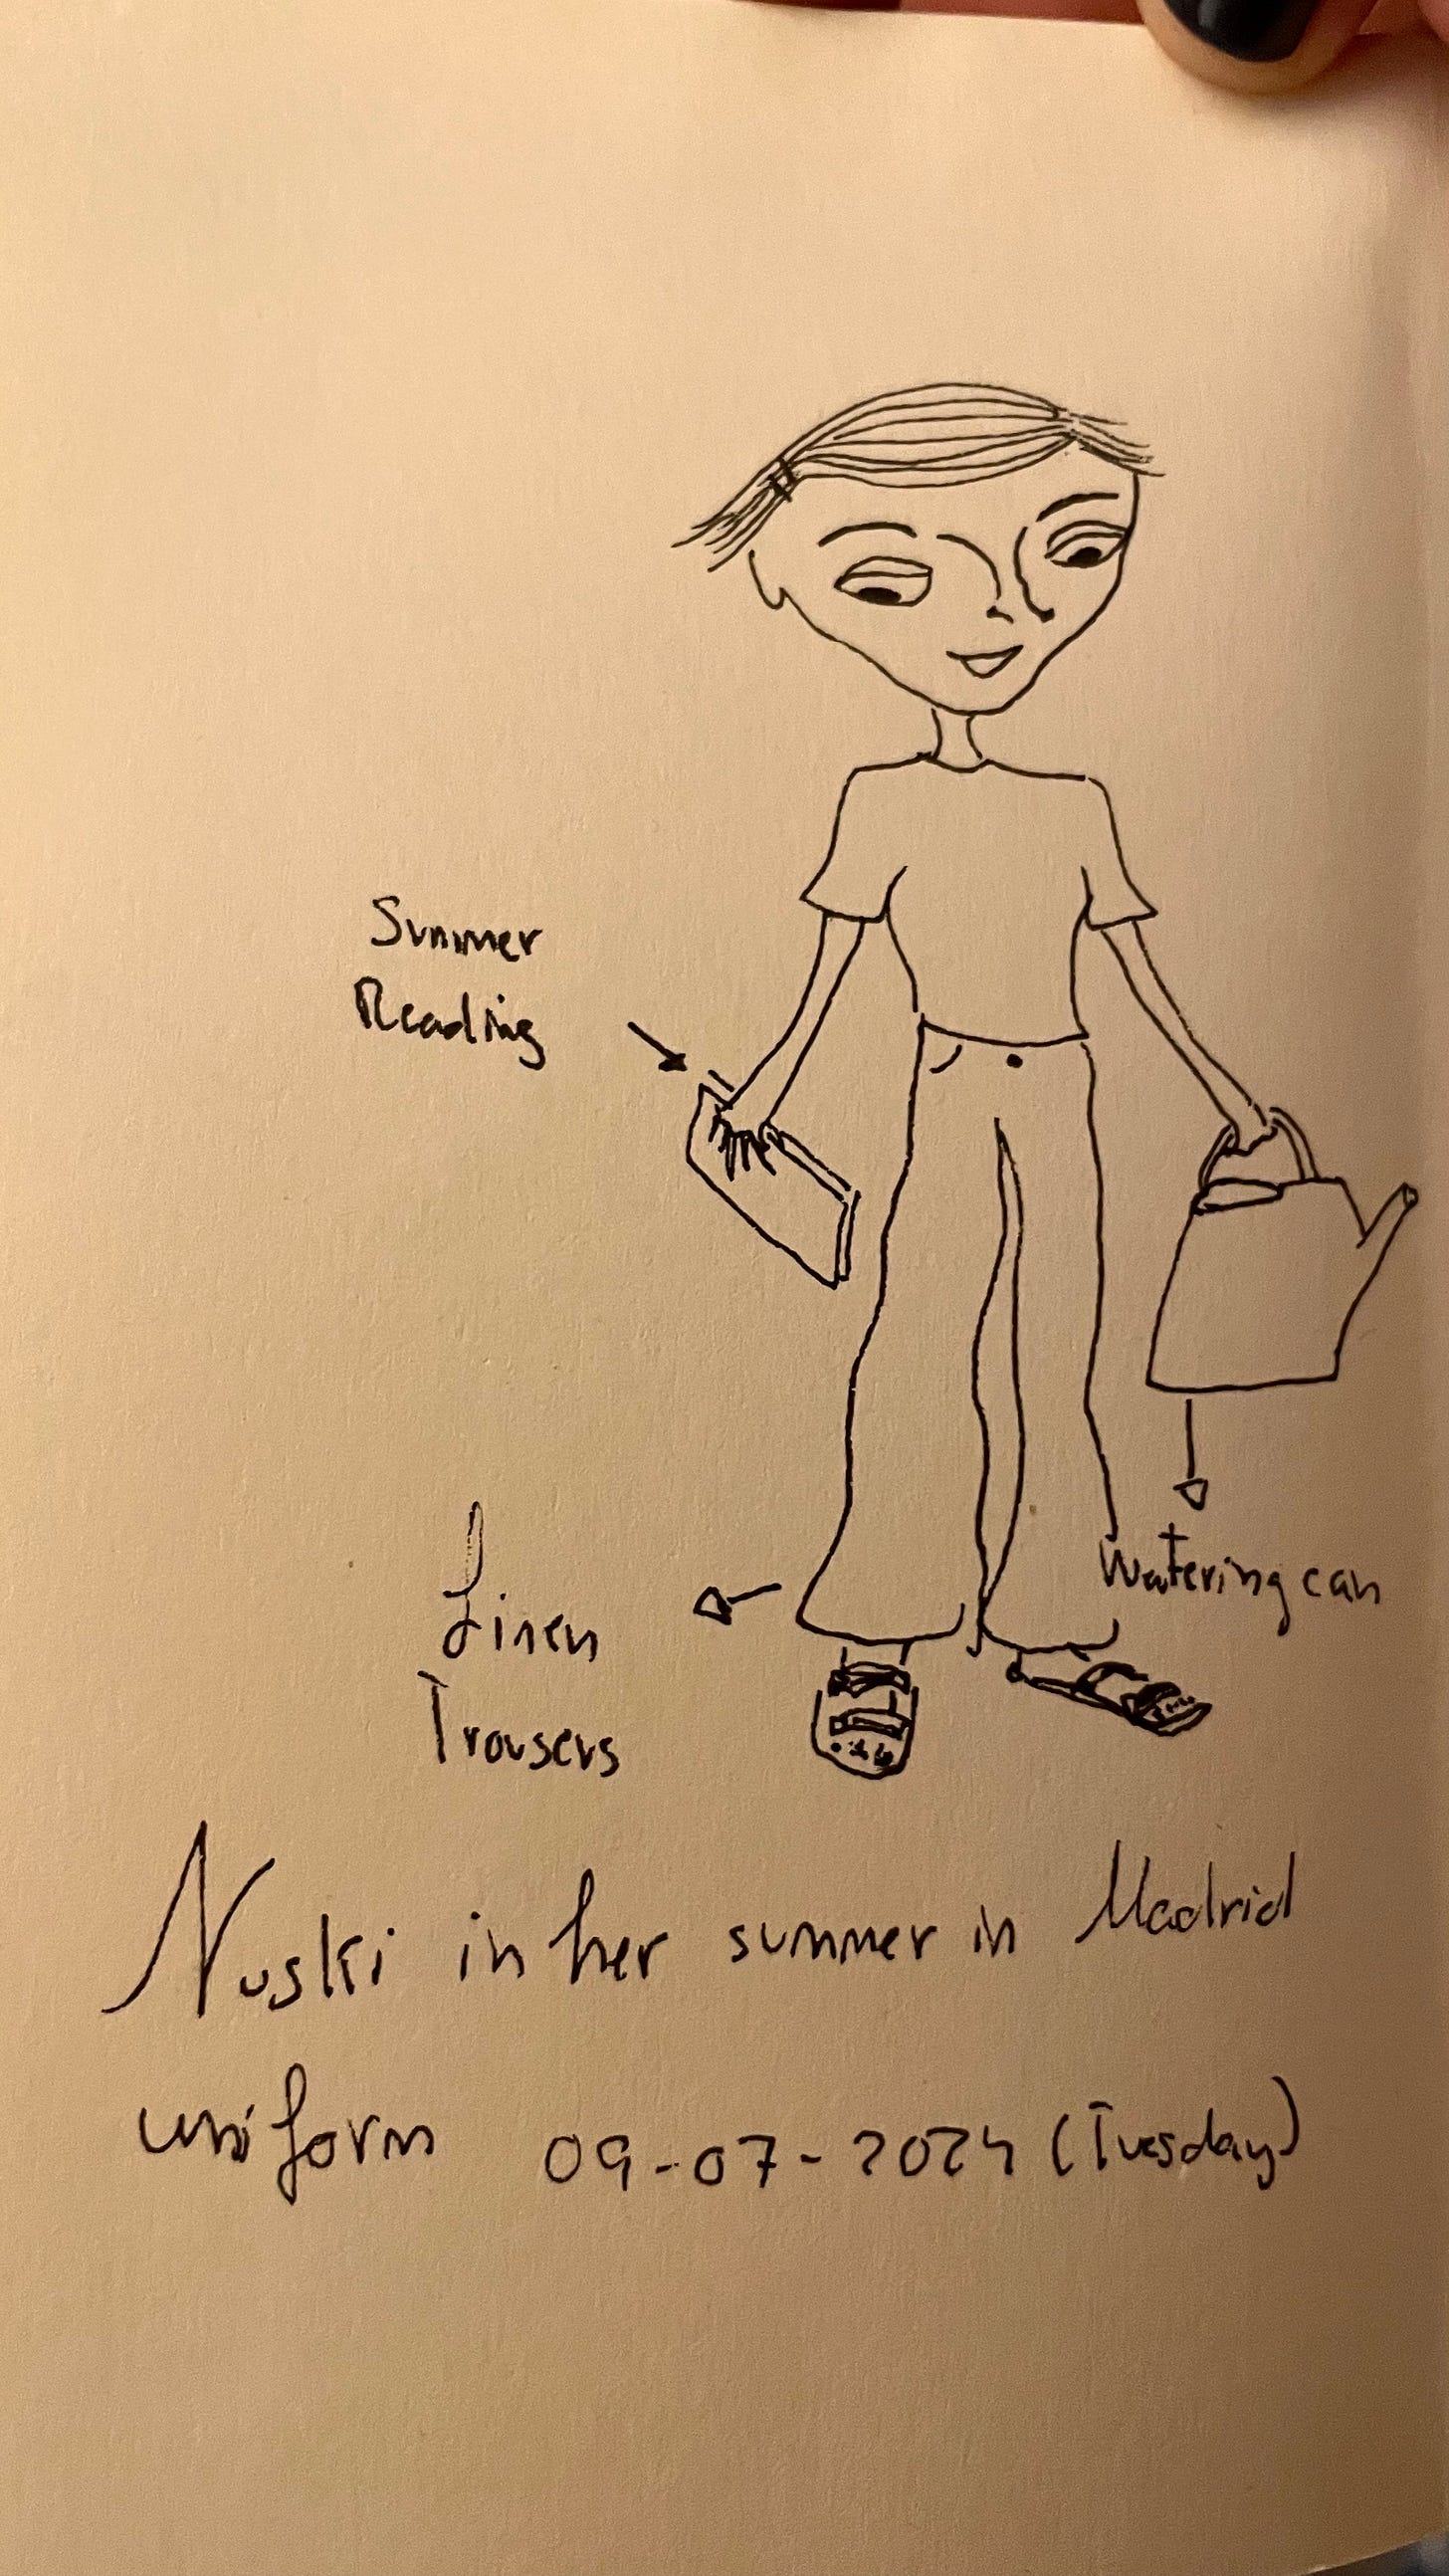 Summer
Reading
Watering can
Linen
Trousers
Nuski in her summer in Madrid
uniform 09-07-2024 (Tuesday)